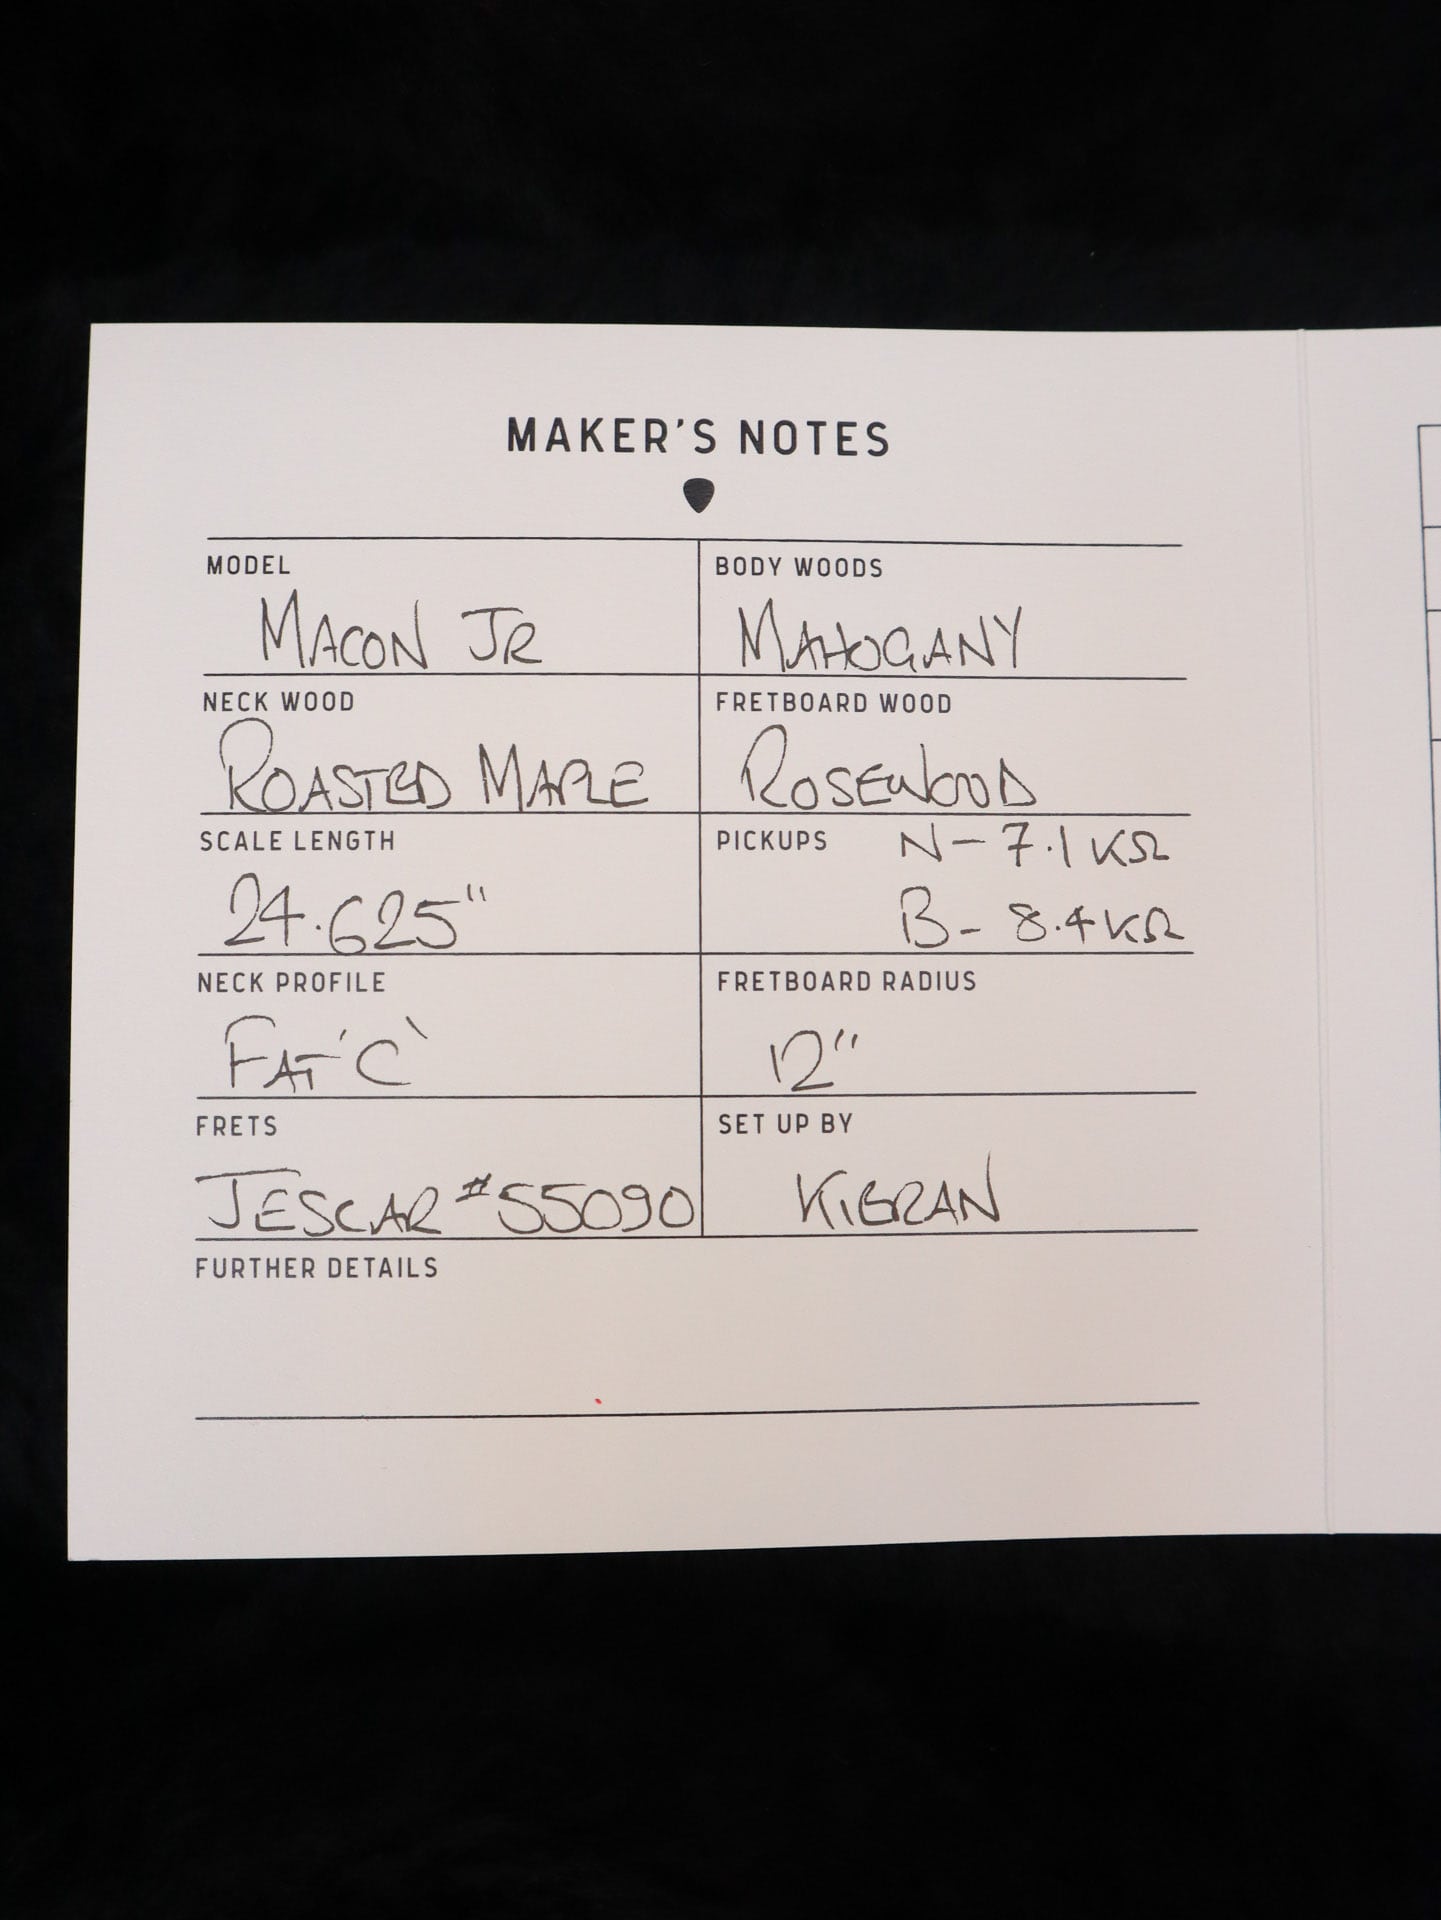 MAKER'S NOTES
MODEL
MACON JR
BODY WOODS
MAHOGANY
NECK WOOD
ROASTED MAPLE
FRETBOARD WOOD
ROSEWOOD
SCALE LENGTH
24.625"
PICKUPS N - 7.1 KΩ
B - 8.4 KΩ
NECK PROFILE
FAT 'C'
FRETBOARD RADIUS
12"
FRETS
JESCAR #55090
SET UP BY
KIERAN
FURTHER DETAILS